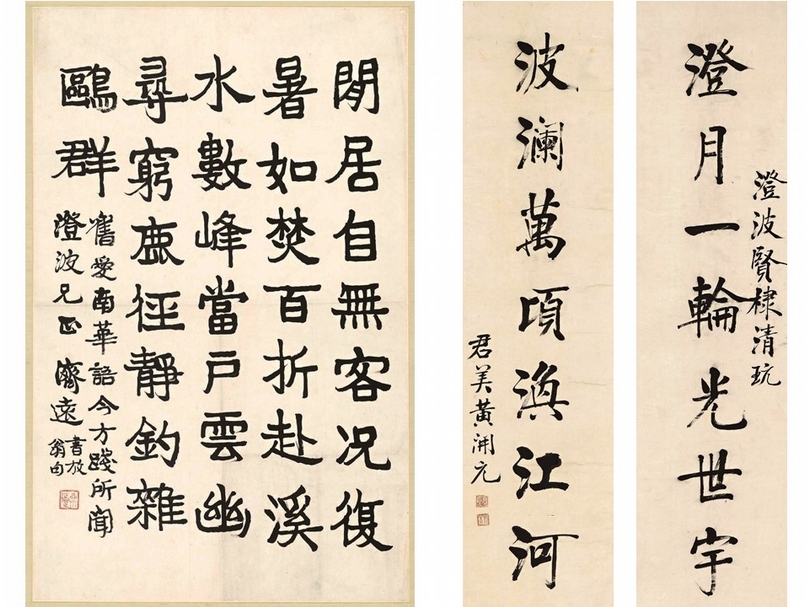 閒居自無客况復
暑如焚百折赴溪
水數峰當戶雲幽
尋窮鹿徑靜釣雜
鷗群
舊愛南華語今方踐所聞
澄波兄正 濟遠書放翁句
澄波賢棣清玩
澄月一輪光世宇
波瀾萬頃江河
君美黃開元